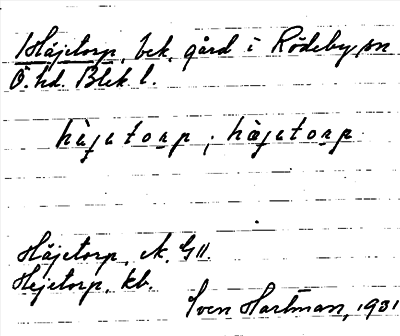 Håjetorp, bek. gård i Rödeby sn
Ö. hd. Blek. l.
hàjetorp ; hæ̀jetorp
Håjetorp, A. G 11.
Hejetorp, kb.
Sven Hartman, 1931